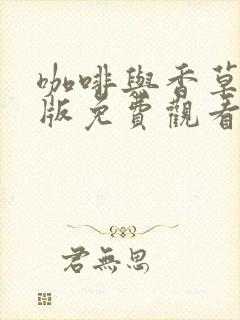 咖啡與香草
版免費觀看
君無思